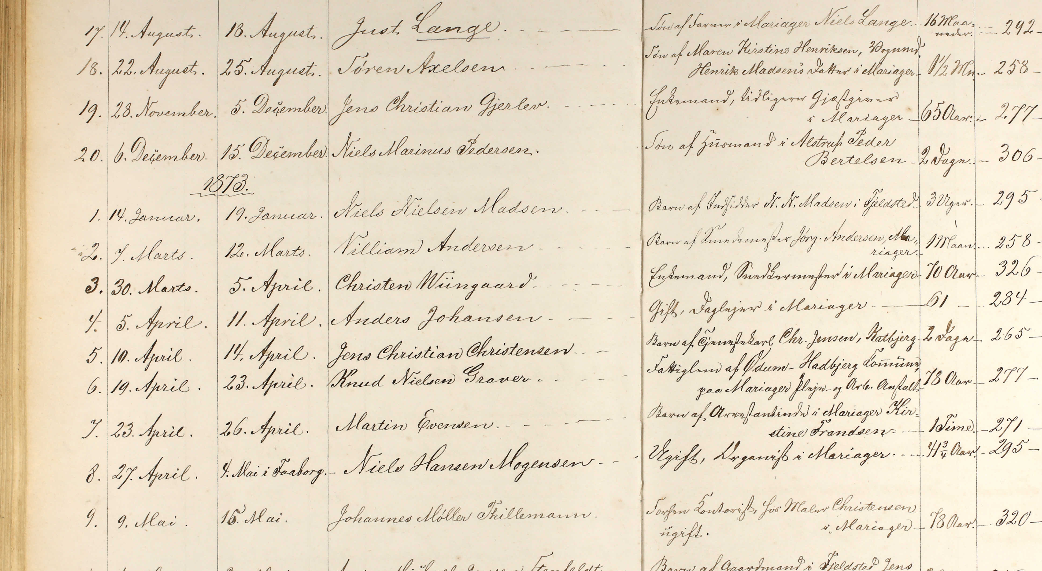 17. 14. August. 18. August. Just Lange. Søn af Farver i Mariager Niels Lange. 16 Maa- 292
neder.
18. 22. August. 25. August. Sören Axelsen Søn af Maren Kirstine Henriksen,
Henrik Madsens Datter i Mariager. 1/2 258
19. 28. November. 5. December. Jens Christian Gjerlev. Enkemand, tidligere Gjæstgiver
i Mariager 65 Aar. 277
20. 6. December. 15. December. Niels Marinus Pedersen. Søn af Huusmand i Alstrup Peder
Bertelsen 2 Dage 306
1873.
1. 14. Januar. 19. Januar. Niels Nielsen Madsen. Barn af Indsidder N. N. Madsen i Fjeldsted. 3 Uger. 295
2. 7. Marts. 12. Marts. Villiam Andersen Barn af Smedemester Jörg. Andersen, Ma- 1 Maan. 258
riager.
3. 30. Marts. 5. April. Christen Wiingaard. Enkemand, Snedkermester i Mariager 70 Aar 326
4. 5. April. 11. April. Anders Johansen Gift, Daglejer i Mariager 61 284
5. 10. April. 14. April. Jens Christian Christensen Barn af Tjenestekarl Chr. Jensen, Katbjerg 2 Dage 265
6. 19. April. 23. April. Knud Nielsen Graver. Fattiglem af Ødum-Hadbjerg Commune
paa Mariager Pleje- og Arb. Anstalt 78 Aar 277
7. 23. April. 26. April. Martin Evensen. Barn af Arrestantinde i Mariager Kir-
stine Frandsen 1 Time 271
8. 27. April. 4. Mai i Faaborg. Niels Hansen Mogensen Ugift, Organist i Mariager. 41 3/4 Aar. 295
9. 9. Mai. 15. Mai. Johannes Möller Thillemann Forhen Kontorist hos Maler Christensen
ugift. i Mariager 78 Aar. 320
Barn af Gaardmand i Fjeldsted Jens